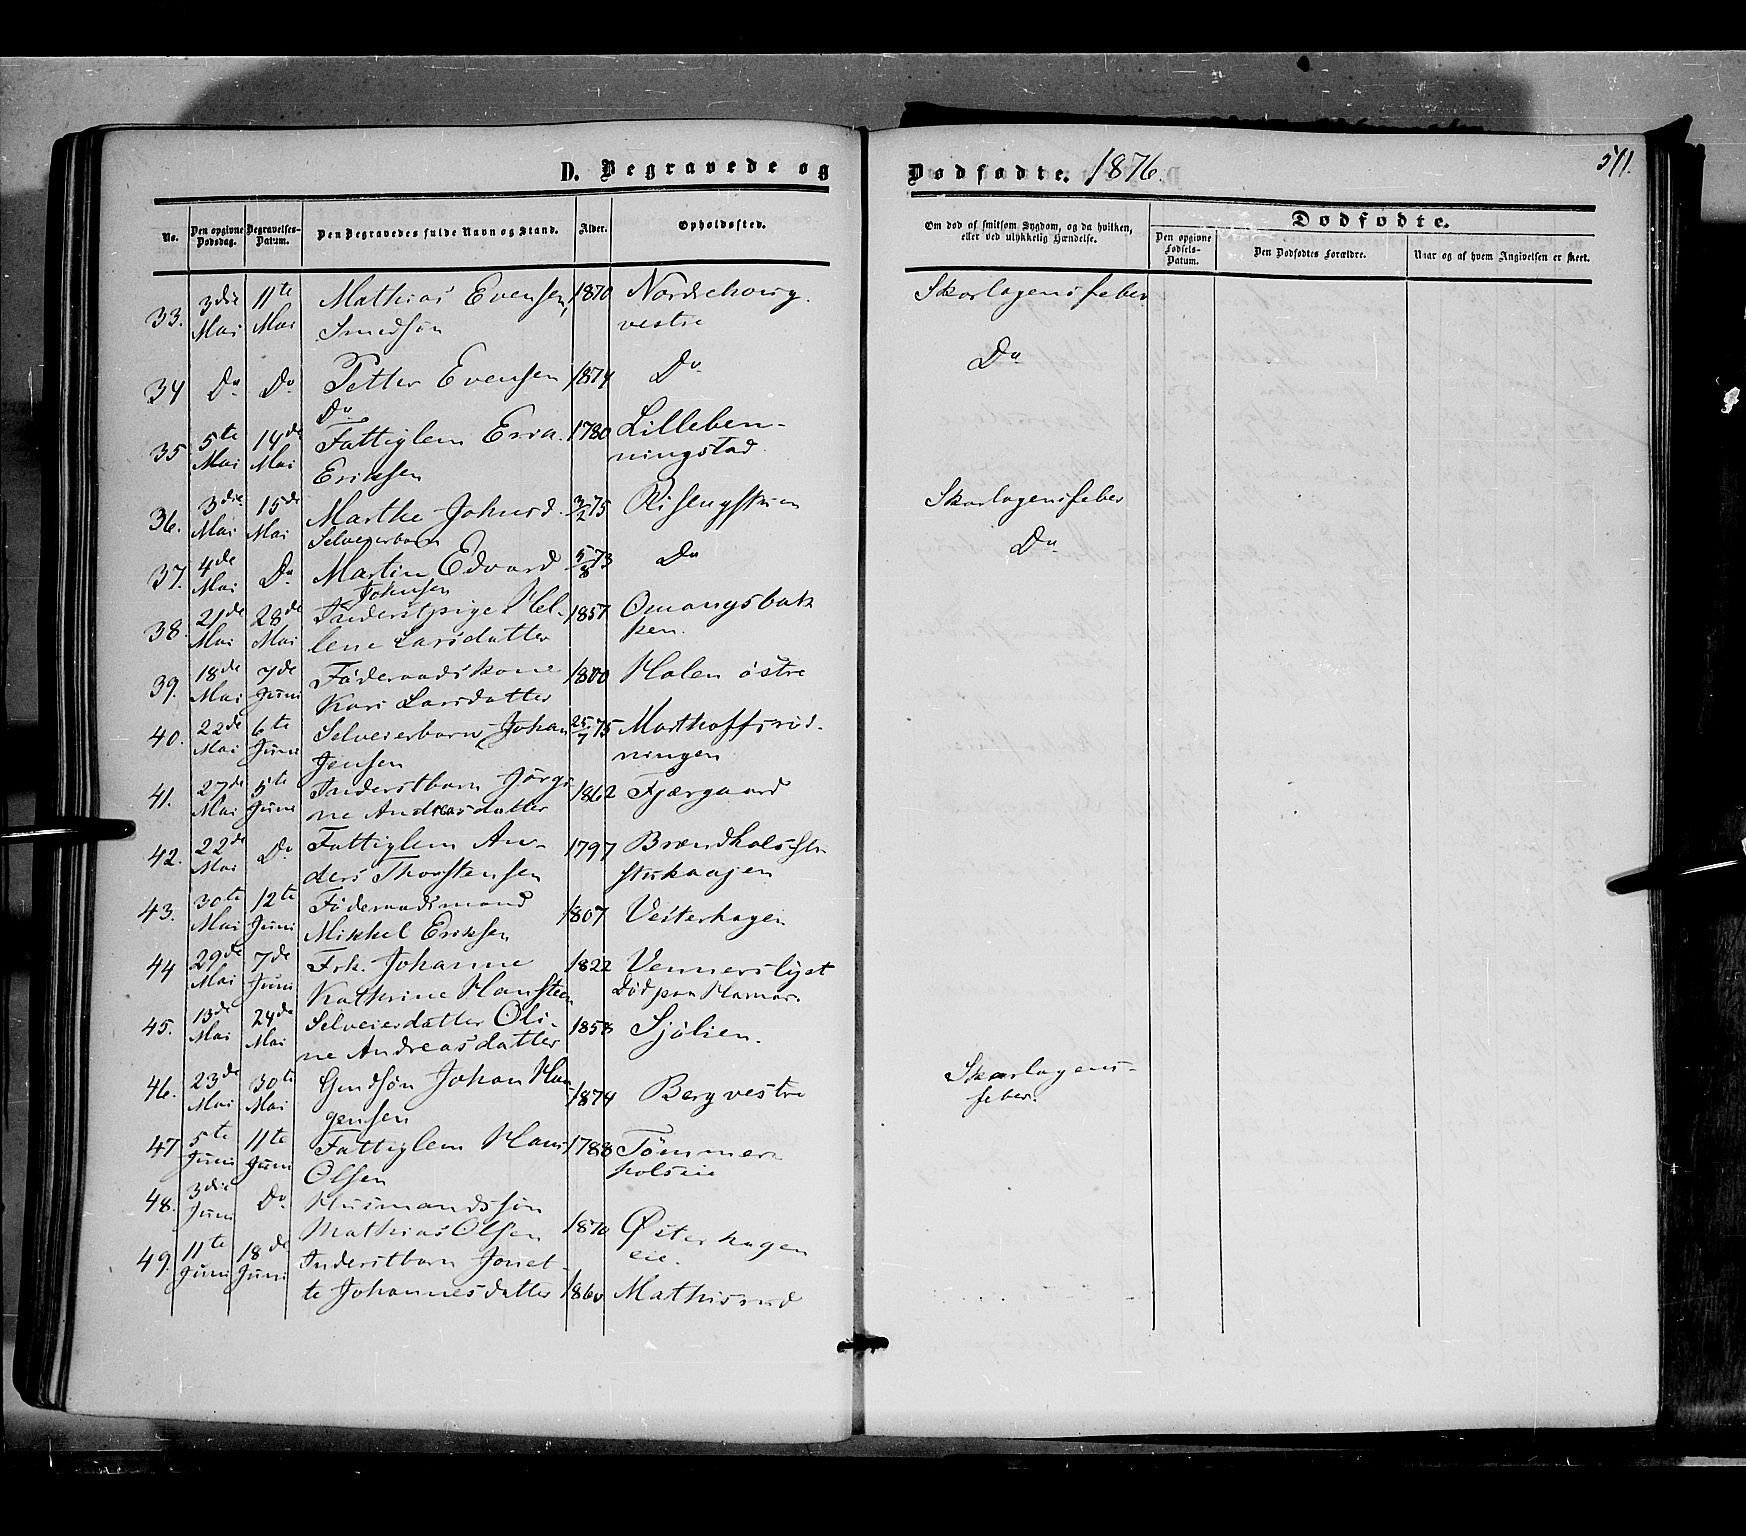 D. Begravede og
Dødfødte. 1876.
511.
No.
Den opgivne Dødsdag.
Begravelses-Datum.
Den Begravedes fulde Navn og Stand.
Alder.
Opholdssted.
Om død af smitsom Sygdom, og da hvilken,
eller ved ulykkelig Hændelse.
Dødfødte.
Den opgivne Fødsels-Datum.
Den Dødfødtes Forældre.
Naar og af hvem Angivelsen er skeet.
33. 3die Mai 11te Mai Mathias Evensen, 1870 Nordsehoug Skarlagensfeber
Smedsøn vestre
34 Do Do Petter Evensen 1874 Do Do
Do
35 5te Mai 14de Mai Fattiglem 1780 Lilleben-
Eriksen ningstad.
36. 3die Mai 15de Mai Marthe Johnsd. 3/2 75 Skarlagensfeber
Selveierbarn
37. 4de Mai Do Martin Edvard 5/8 73 Do Do
Johnsen
38. 21de Mai 28de Mai Inderstpige Hel- 1857 Omangsbak
lene Larsdatter ken.
39. 18de Mai 7de Juni Föderaadskone 1800 Holen östre
Kari Larsdatter
40. 22de Mai 6te Juni Selveierbarn Johan 25/7 75
Jensen ningen
41. 27de Mai 5te Juni Inderstbarn Jørgi 1862 Fjærgaard
ne Andreasdatter
42. 22de Mai Do Fattiglem An- 1797
ders Thorstensen
43. 30te Mai 12te Juni Föderaadsmand 1807 Vesterhagen
Mikkel Eriksen
44 29de Mai 7de Juni Frk. Johanne 1822 Vennerslyst
Kathrine Hansteen Död paa Hamar.
45. 13de Mai 24de Mai Selveierdatter Oli- 1858 Sjölien.
ne Andreasdatter
46. 23de Mai 30te Mai Gmdsön Johan Hau 1874 Berg vestre Skarlagens-
gensen feber.
47 5te Juni 11te Juni Fattiglem Hans 1788 Tömmer-
Olsen holseie
48. 3die Juni Do Husmandssön
Mathias Olsen 1870 Østerhagen
49. 11te Juni 18de Juni Inderstbarn Jonet- eie.
te Johannesdatter 1860 Mathisrud